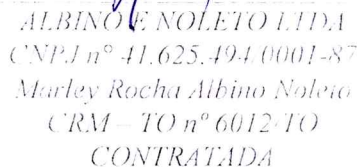 ALBINO E NOLETO LTDA
CNPJ nº 41.625.494/0001-87
Marley Rocha Albino Noleto
CRM – TO nº 6012/TO
CONTRATADA